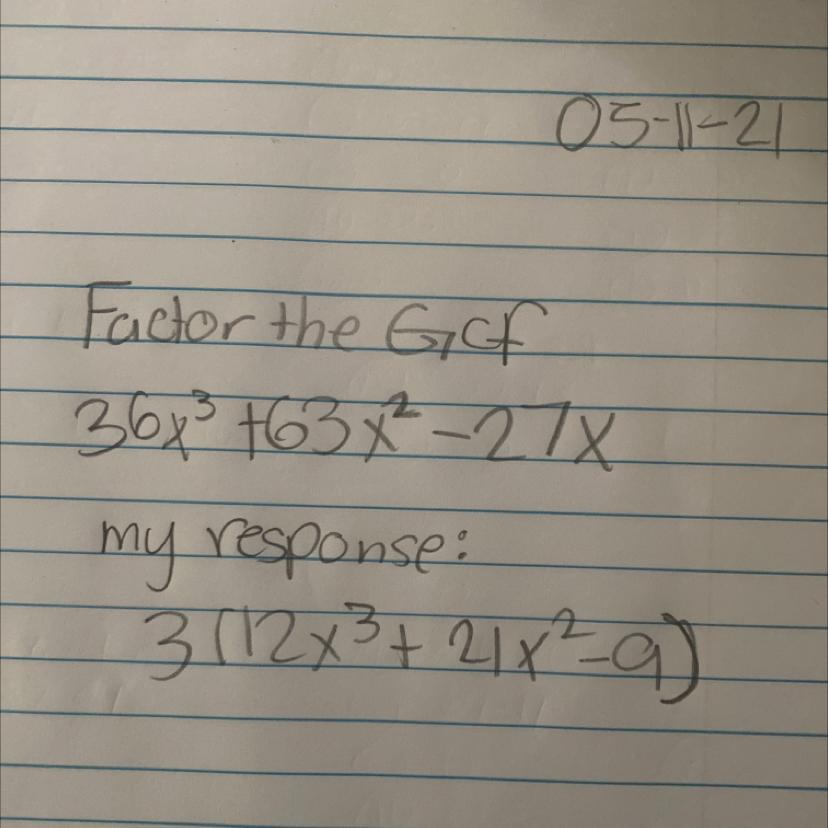 05-11-21
Factor the Gcf
36x³ +63x² -27x
my response:
3(12x³ + 21x² - 9)